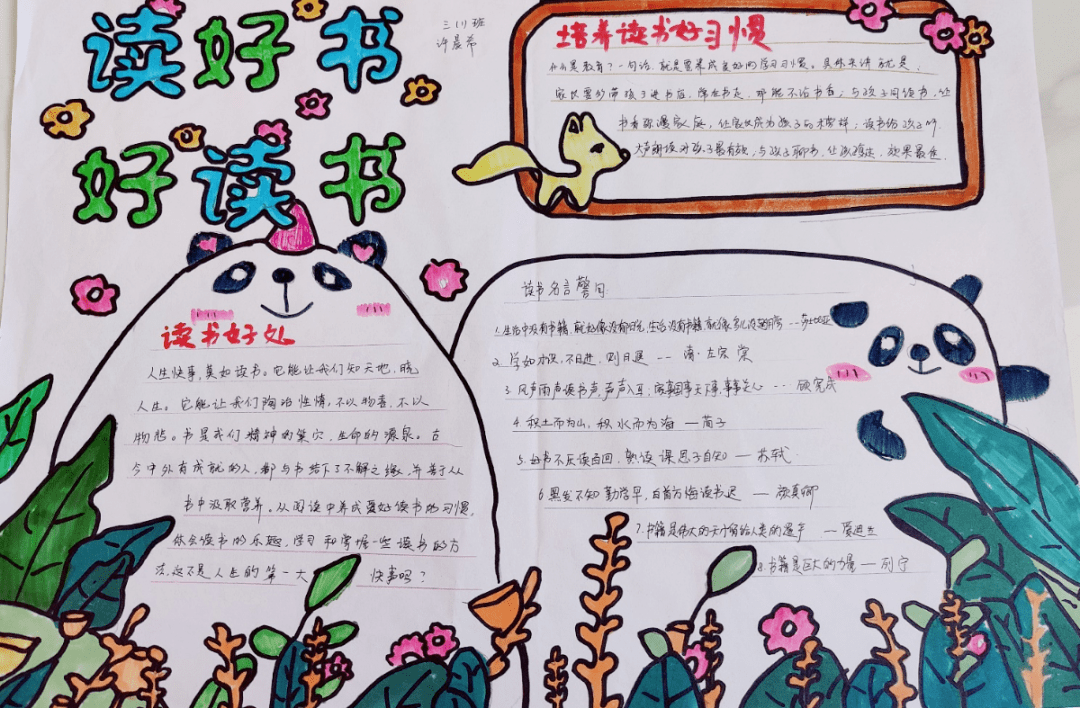 读好书
好读书
三(1)班
许晨希
培养读书好习惯
什么是教育?一句话,就是要养成良好的学习习惯。具体来讲就是,
家长要多带孩子进书店,除在书走,那能不沾书香;与孩子同读书,让
书香弥漫家庭,让家长成为孩子的榜样;读书给孩子听
大声朗读对孩子最有效,与孩子聊书,让孩子,效果最佳
读书好处
人生快事,莫如读书。它能让我们知天地,晓
人生。它能让我们陶冶性情,不以物喜,不以
物悲。书是我们精神的巢穴,生命的源泉。古
今中外有成就的人,都与书结下了不解之缘,并善于从
书中汲取营养。从阅读中养成爱好读书的习惯,
体会读书的乐趣,学习和掌握一些读书的方
法,这不是人生的第一大快事吗?
读书名言警句
1.生活中没有书籍,就好像没有阳光,生活没有书籍,就像鸟儿没有翅膀 --莎士比亚
2.学如,不日进,则日退 -- 清·左宗棠
3.风声雨声读书声,声声入耳,家事国事天下事,事事关心 --- 顾宪成
4.积土而为山,积水而为海 —荀子
5.书不厌读百回,熟读课思子自知 — 苏轼
6.黑发不知勤学早,白首方悔读书迟 — 颜真卿
7.书籍是伟大的天才留给人类的遗产 —
8.书籍是巨大的力量 — 列宁